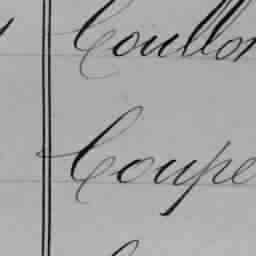 Coullon
Coupe